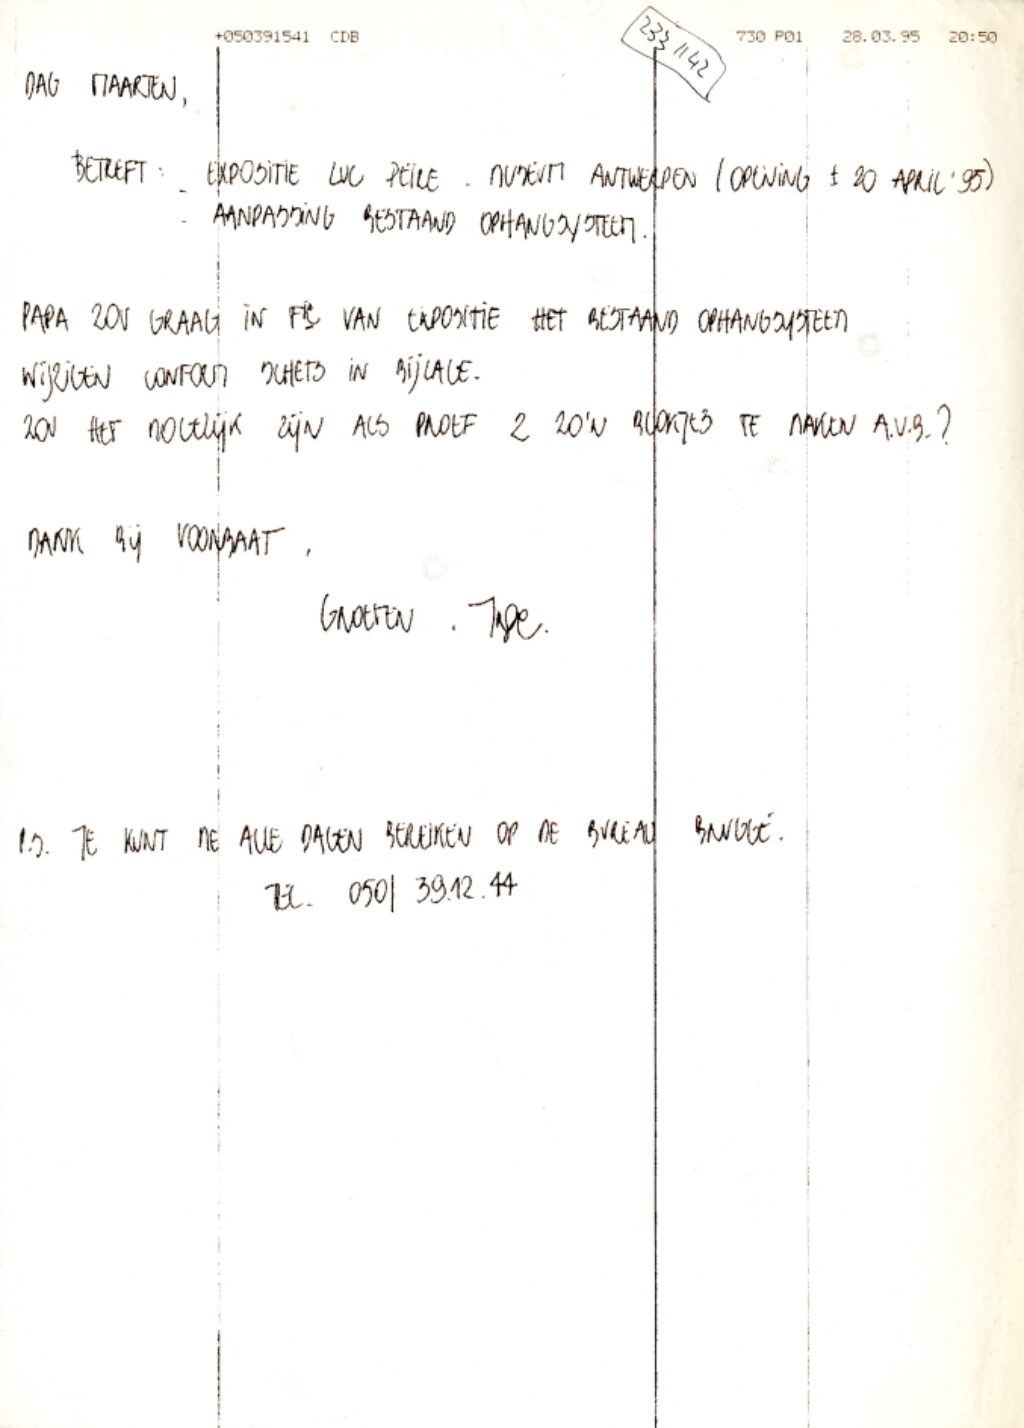 +050391541 CDB 730 P01 28.03.95 20:50
233 1142
DAG MAARTEN,
BETREFT : - EXPOSITIE LUC PEIRE - MUSEUM ANTWERPEN (OPENING ± 20 APRIL '95)
- AANPASSING BESTAAND OPHANGSYSTEEM.
PAPA ZOU GRAAG IN VAN EXPOSITIE HET BESTAAND OPHANGSYSTEEM
WIJZIGEN CONFORM SCHETS IN BIJLAGE.
ZOU HET MOGELIJK ZIJN ALS PROEF 2 ZO'N BLOKJES TE MAKEN A.U.B.?
DANK BIJ VOORBAAT,
GROETEN.
P.S. JE KUNT ME ALLE DAGEN BEREIKEN OP DE BUREAU BRUGGE.
TEL. 050/ 39.12.44